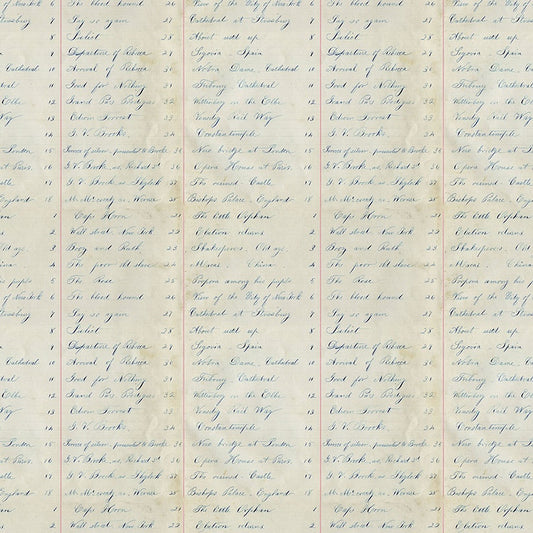 of New York 6 The blood hound 26 View of the City of New York 6 The blood hound 26 View of the City of New York
Strasburg 7 Say so again 27 Cathedral at Strasburg 7 Say so again 27 Cathedral at Strasburg
8 Juliet 28 About used up 8 Juliet 28 About used up
9 Departure of Rebecca 29 Segovia Spain 9 Departure of Rebecca 29 Segovia Spain
Cathedral 10 Arrival of Rebecca 30 Notra Dame, Cathedral 10 Arrival of Rebecca 30 Notra Dame,
11 Food for Nothing 31 Friburg Cathedral 11 Food for Nothing 31 Friburg Cathedral
Elbe 12 32 Wittenberg on the Elbe 12 32 Wittenberg on the
Way 13 Edwin Forrest 33 Rail Way 13 Edwin Forrest 33 Rail Way
14 G. V. Brooks. 34 Constantinople 14 G. V. Brooks. 34 Constantinople
London 15 Service of silver presented to Brooks 35 New bridge at London 15 Service of silver presented to Brooks 35 New bridge at
at Paris. 16 G. V. Brook as Richard 3d 36 Opera House at Paris. 16 G. V. Brook as Richard 3d 36 Opera House at
Castle 17 G. V. Brook as Shylock 37 The ruined Castle. 17 G. V. Brook as Shylock 37 The ruined Castle.
England 18 as Werner 38 Bishops Palace, England 18 as Werner 38 Bishops Palace, England
1 Cape Horn 21 The little Orphan 1 Cape Horn 21 The little Orphan
2 Wall street New York 22 Election returns 2 Wall street New York 22 Election returns
Old age. 3 Boaz and Ruth 23 Shakespeares, Old age. 3 Boaz and Ruth 23 Shakespeares, Old
4 The poor old slave 24 Macao, China 4 The poor old slave 24 Macao, China
people 5 The Rose 25 among his people 5 The Rose 25 among his
of New York 6 The blood hound 26 View of the City of New York 6 The blood hound 26 View of the City of New York
Strasburg 7 Say so again 27 Cathedral at Strasburg 7 Say so again 27 Cathedral at Strasburg
8 Juliet 28 About used up 8 Juliet 28 About used up
9 Departure of Rebecca 29 Segovia Spain 9 Departure of Rebecca 29 Segovia Spain
Cathedral 10 Arrival of Rebecca 30 Notra Dame, Cathedral 10 Arrival of Rebecca 30 Notra Dame,
11 Food for Nothing 31 Friburg Cathedral 11 Food for Nothing 31 Friburg Cathedral
Elbe 12 32 Wittenberg on the Elbe 12 32 Wittenberg on the
Way 13 Edwin Forrest 33 Rail Way 13 Edwin Forrest 33 Rail Way
14 G. V. Brooks. 34 Constantinople 14 G. V. Brooks. 34 Constantinople
London 15 Service of silver presented to Brooks 35 New bridge at London 15 Service of silver presented to Brooks 35 New bridge at
at Paris. 16 G. V. Brook as Richard 3d 36 Opera House at Paris. 16 G. V. Brook as Richard 3d 36 Opera House at
Castle 17 G. V. Brook as Shylock 37 The ruined Castle. 17 G. V. Brook as Shylock 37 The ruined Castle.
England 18 as Werner 38 Bishops Palace, England 18 as Werner 38 Bishops Palace, England
1 Cape Horn 21 The little Orphan 1 Cape Horn 21 The little Orphan
2 Wall street New York 22 Election returns 2 Wall street New York 22 Election returns